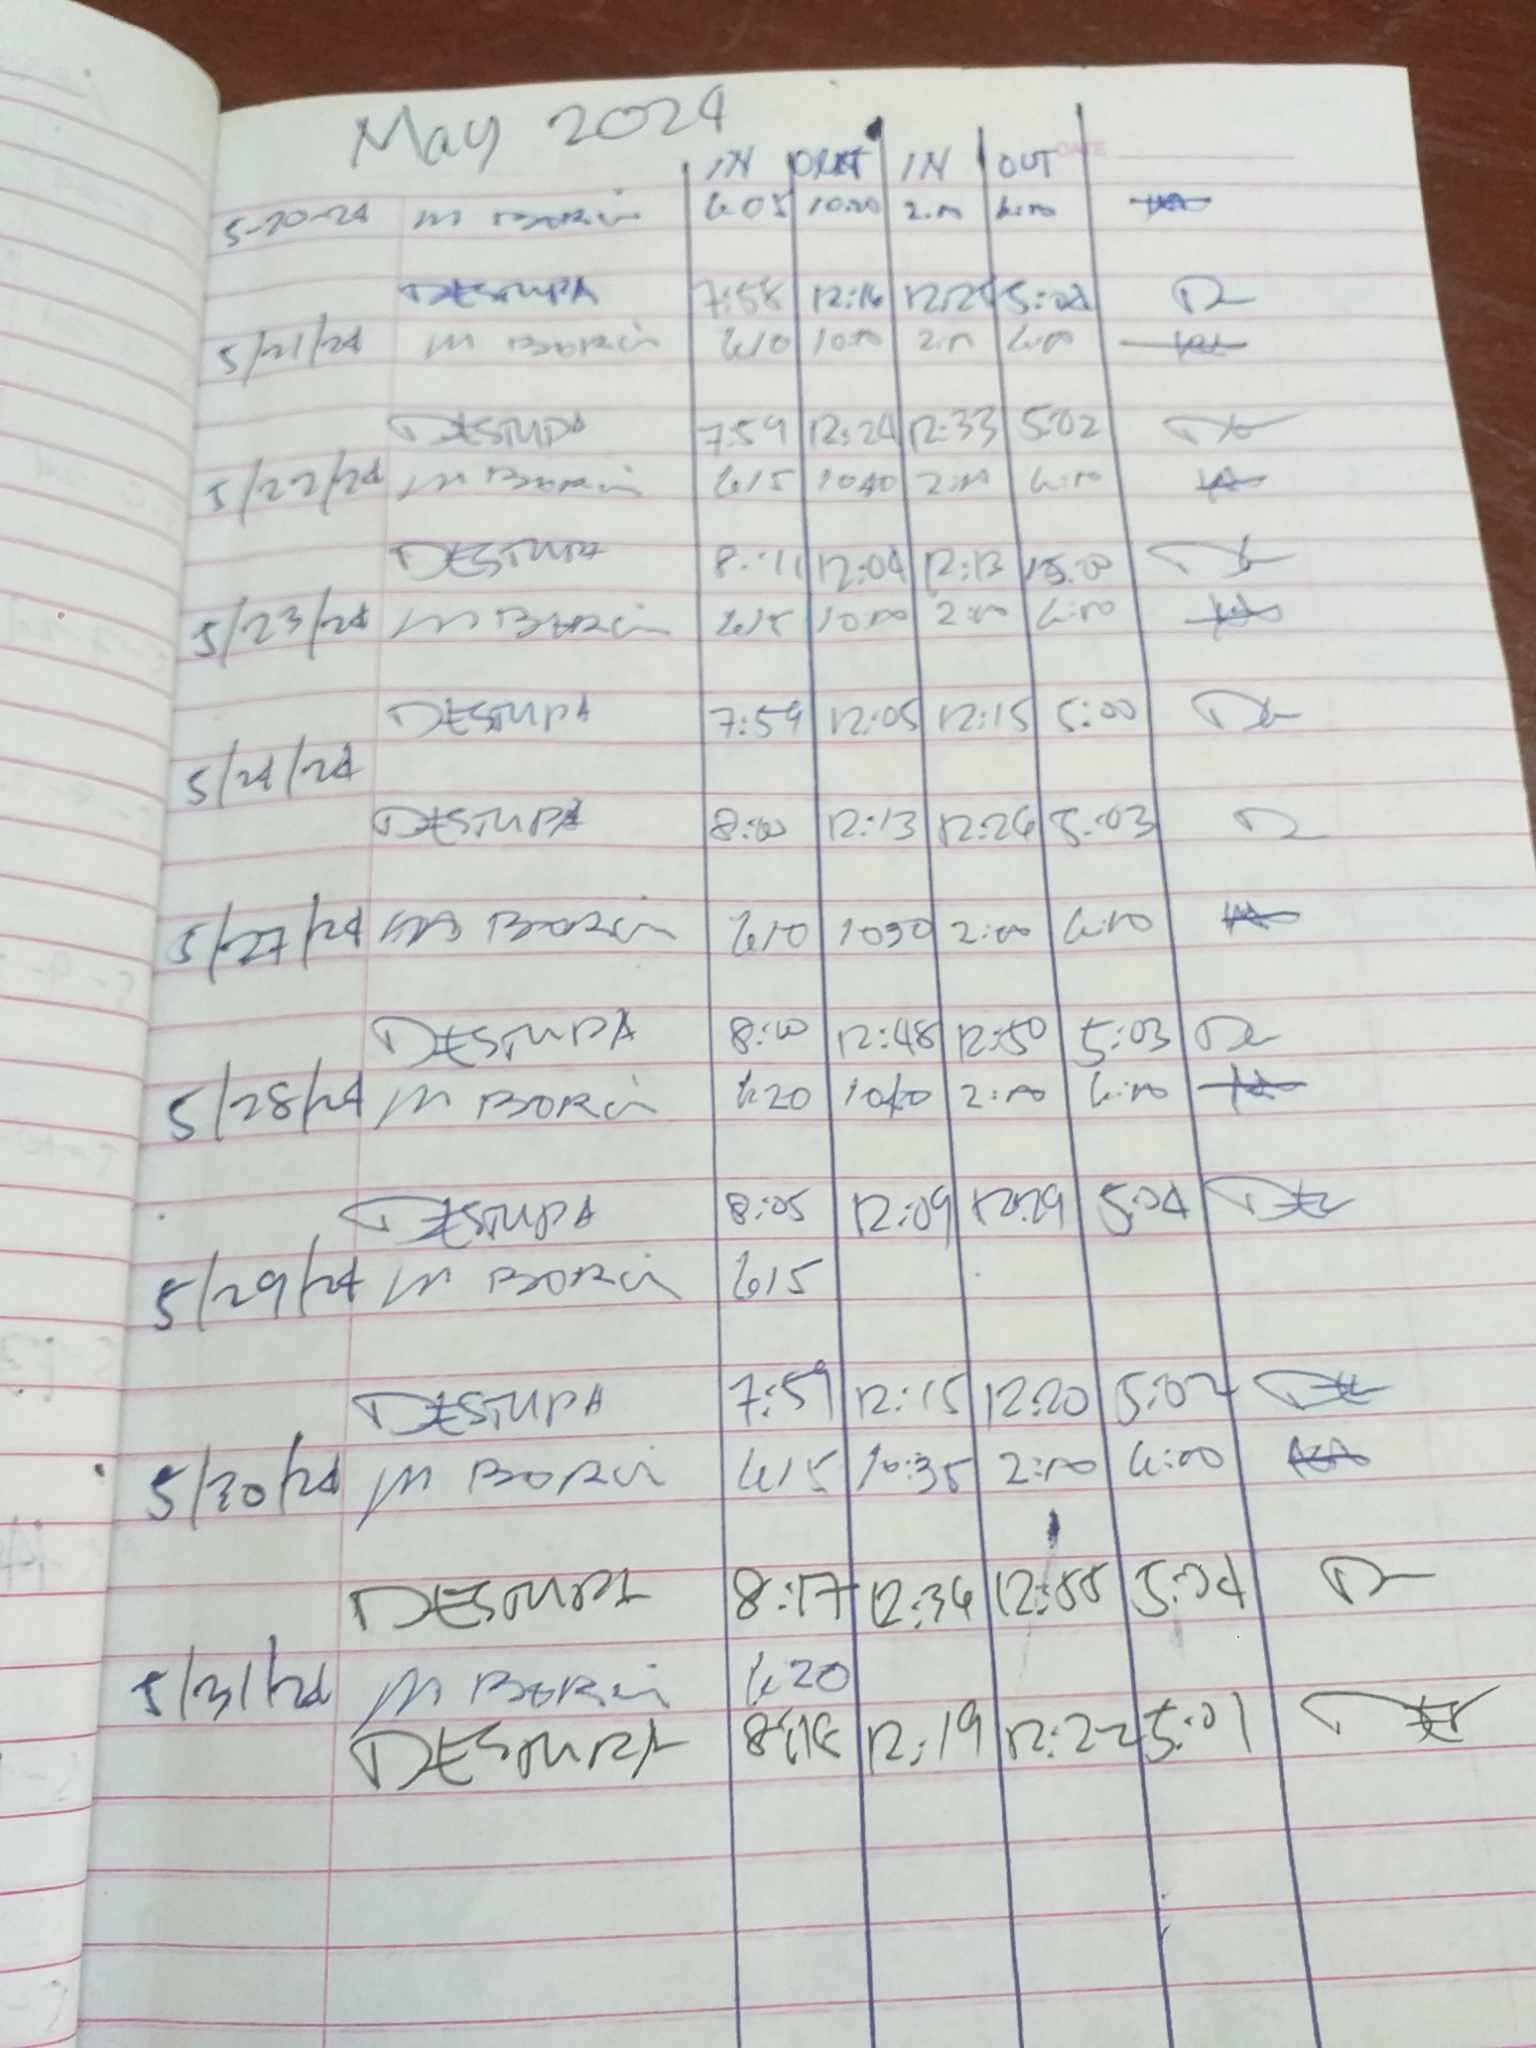 May 2024
IN OUT IN OUT
DATE
5-20-24 M Borin 6:05 10:20 2:00 6:00
DESTUPA 7:58 12:16 5:02
5/21/24 M Borin 610 10:00 2:00 6:00
DESTUPA 7:59 12:24 12:33 5:02
5/22/24 M Borin 615 1040 2:00 6:00
DESTUPA 8:11 12:04 12:13 5:00
5/23/24 M Borin 615 10:00 2:00 6:00
DESTUPA 7:59 12:05 12:15 5:00
5/24/24
DESTUPA 8:00 12:13 12:26 5:03
5/27/24 M Borin 610 1030 2:00 6:00
DESTUPA 8:00 12:48 12:50 5:03
5/28/24 M Borin 620 1040 2:00 6:00
DESTUPA 8:05 12:09 12:29 5:04
5/29/24 M Borin 615
DESTUPA 7:59 12:15 12:20 5:02
5/30/24 M Borin 615 10:35 2:00 6:00
DESTUPA 8:17 12:36 12:55 5:04
5/31/24 M Borin 620
DESTUPA 8:18 12:19 12:22 5:01